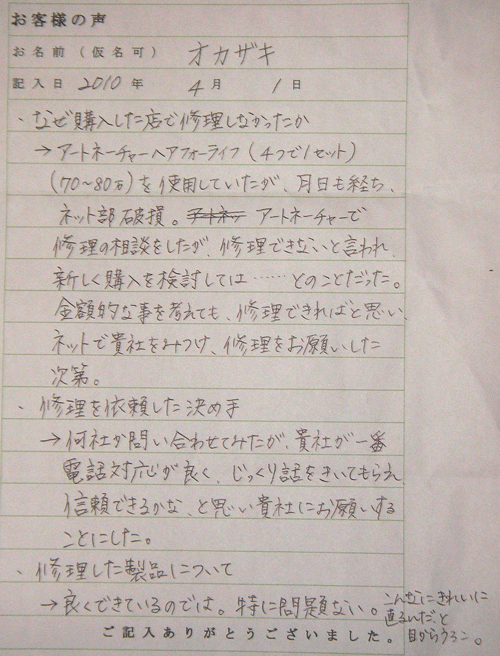 お客様の声
お名前（仮名可） オカザキ
記入日 2010年 4月 1日
・なぜ購入した店で修理しなかったか
→ アートネーチャーヘアフォーライフ（4つで1セット）
（70〜80万）を使用していたが、月日も経ち、
ネット部破損。アートネッ アートネーチャーで
修理の相談をしたが、修理できないと言われ、
新しく購入を検討しては……とのことだった。
金額的な事を考えても、修理できればと思い、
ネットで貴社をみつけ、修理をお願いした
次第。
・修理を依頼した決め手
→ 何社か問い合わせてみたが、貴社が一番
電話対応が良く、じっくり話をきいてもらえ
信頼できるかな、と思い貴社にお願いする
ことにした。
・修理した製品について
→ 良くできているのでは。特に問題ない。こんなにきれいに
直るんだと
目からうろこ。
ご記入ありがとうございました。